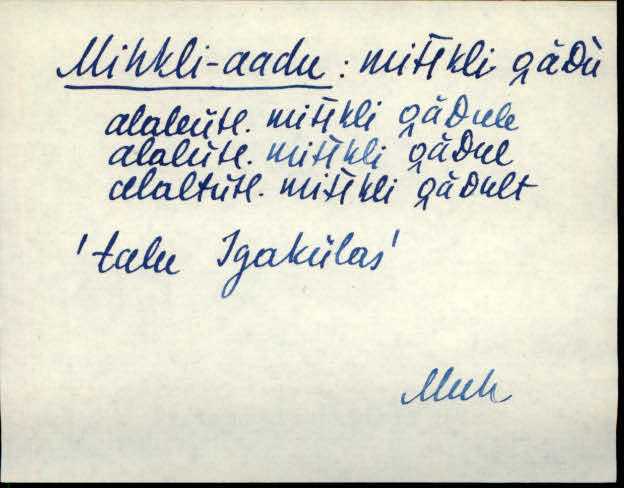 Mihkli-aadu : mihkli ạ̄Dù
alaleütl. mihkli ạ̄Dule
alalütl. mihkli ạ̄Dul
alaltütl. mihkli ạ̄Dult
'talu Igakülas'
Muh